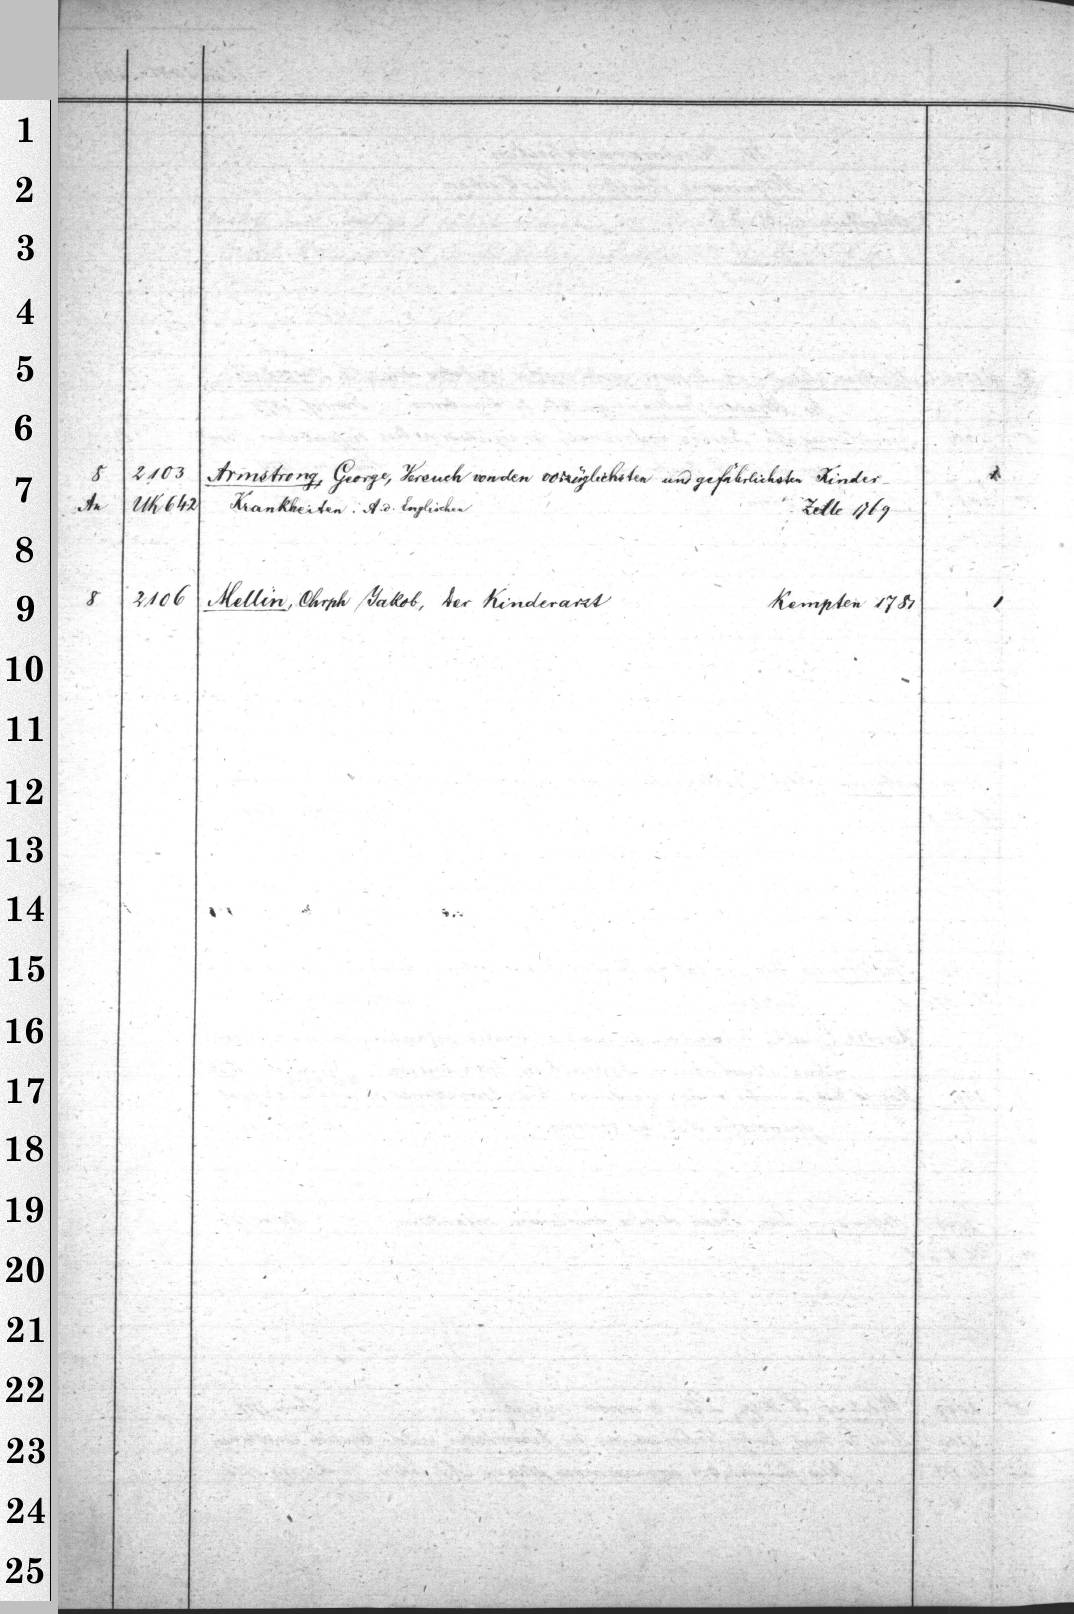 1
2
3
4
5
6
7
8 2103 Armstrong, George, Versuch von den vorzüglichsten und gefährlichsten Kinder- 1
An UK 642 Krankheiten. A. d. Englischen Zelle 1769
8
9
8 2106 Mellin, Chrph Jakob, Der Kinderarzt Kempten 1781 1
10
11
12
13
14
15
16
17
18
19
20
21
22
23
24
25